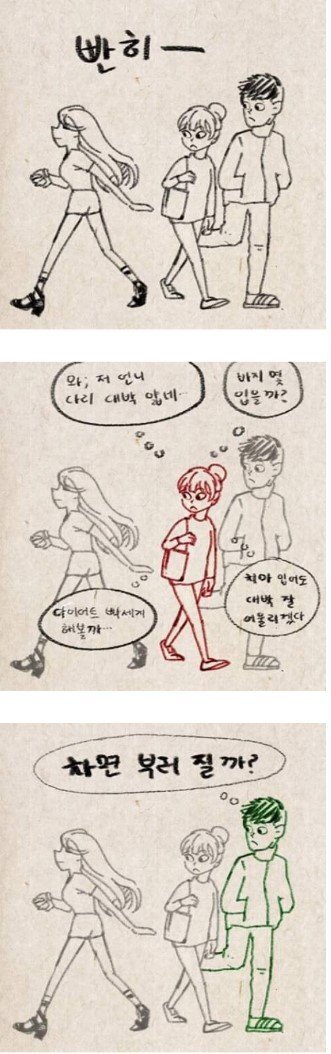 빤히ㅡ
와; 저 언니
다리 대박 얇네…
바지 몇
입을까?
다이어트 빡세게
해볼까…
치마 입어도
대박 잘
어울리겠다
차면 부러 질까?